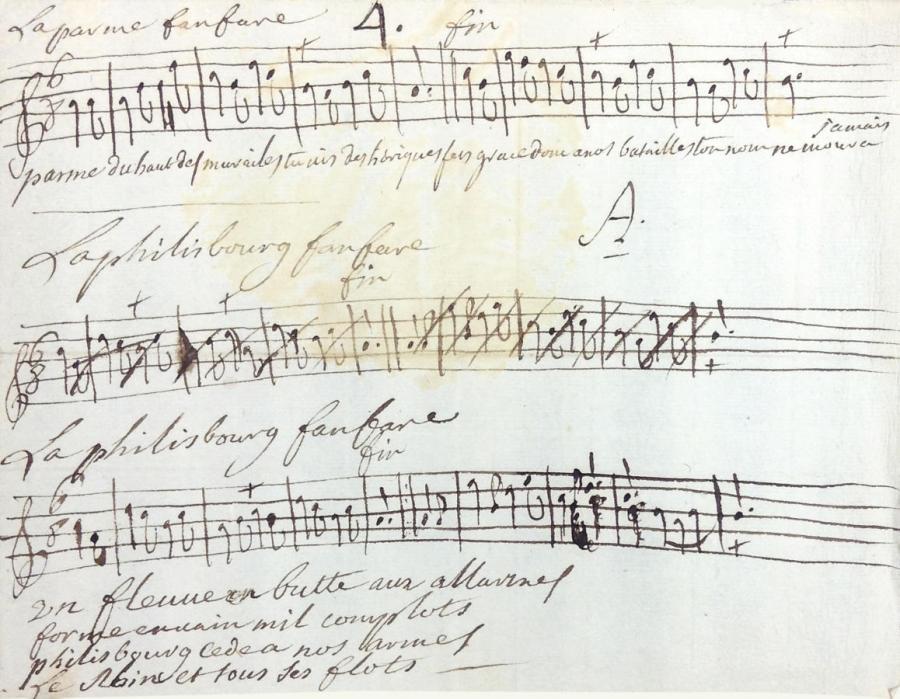 La parme fanfare 4. fin
jamais
parme du haut des murailes tu vis des briques fers grace donc a nos batailles ton nom ne moura
A.
La philisbourg fanfare
fin
La philisbourg fanfare
fin
un fleuve en butte aux allarmes
forme en vain mil complots
philisbourg cede a nos armes
Le Rhin et tous ses flots